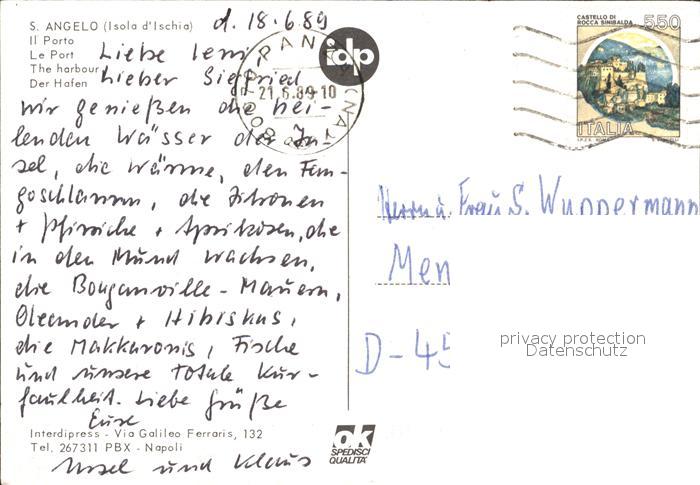 S. ANGELO (Isola d'Ischia) d. 18.6.89
Il Porto
Le Port Liebe Leni,
The harbour Lieber Siegfried
Der Hafen
wir genießen die hei-
lenden Wässer der In-
sel, die Wärme, den Fan-
goschlamm, die Zitronen
+ Pfirsiche + Aprikosen, die
in den Mund wachsen,
die Bouganville-Mauern,
Oleander + Hibiskus,
die Makkaronis, Fische
und unsere totale Kur-
faulheit. Liebe Grüße
Eure
Interdipress - Via Galileo Ferraris, 132
Tel. 267311 PBX - Napoli
Ursel und Klaus
dp
21.6.89-10
ok
SPEDISCI
QUALITA'
CASTELLO DI
ROCCA SINIBALDA 550
ITALIA
Herrn u. Frau S. Wuppermann
Men
D-45
privacy protection
Datenschutz